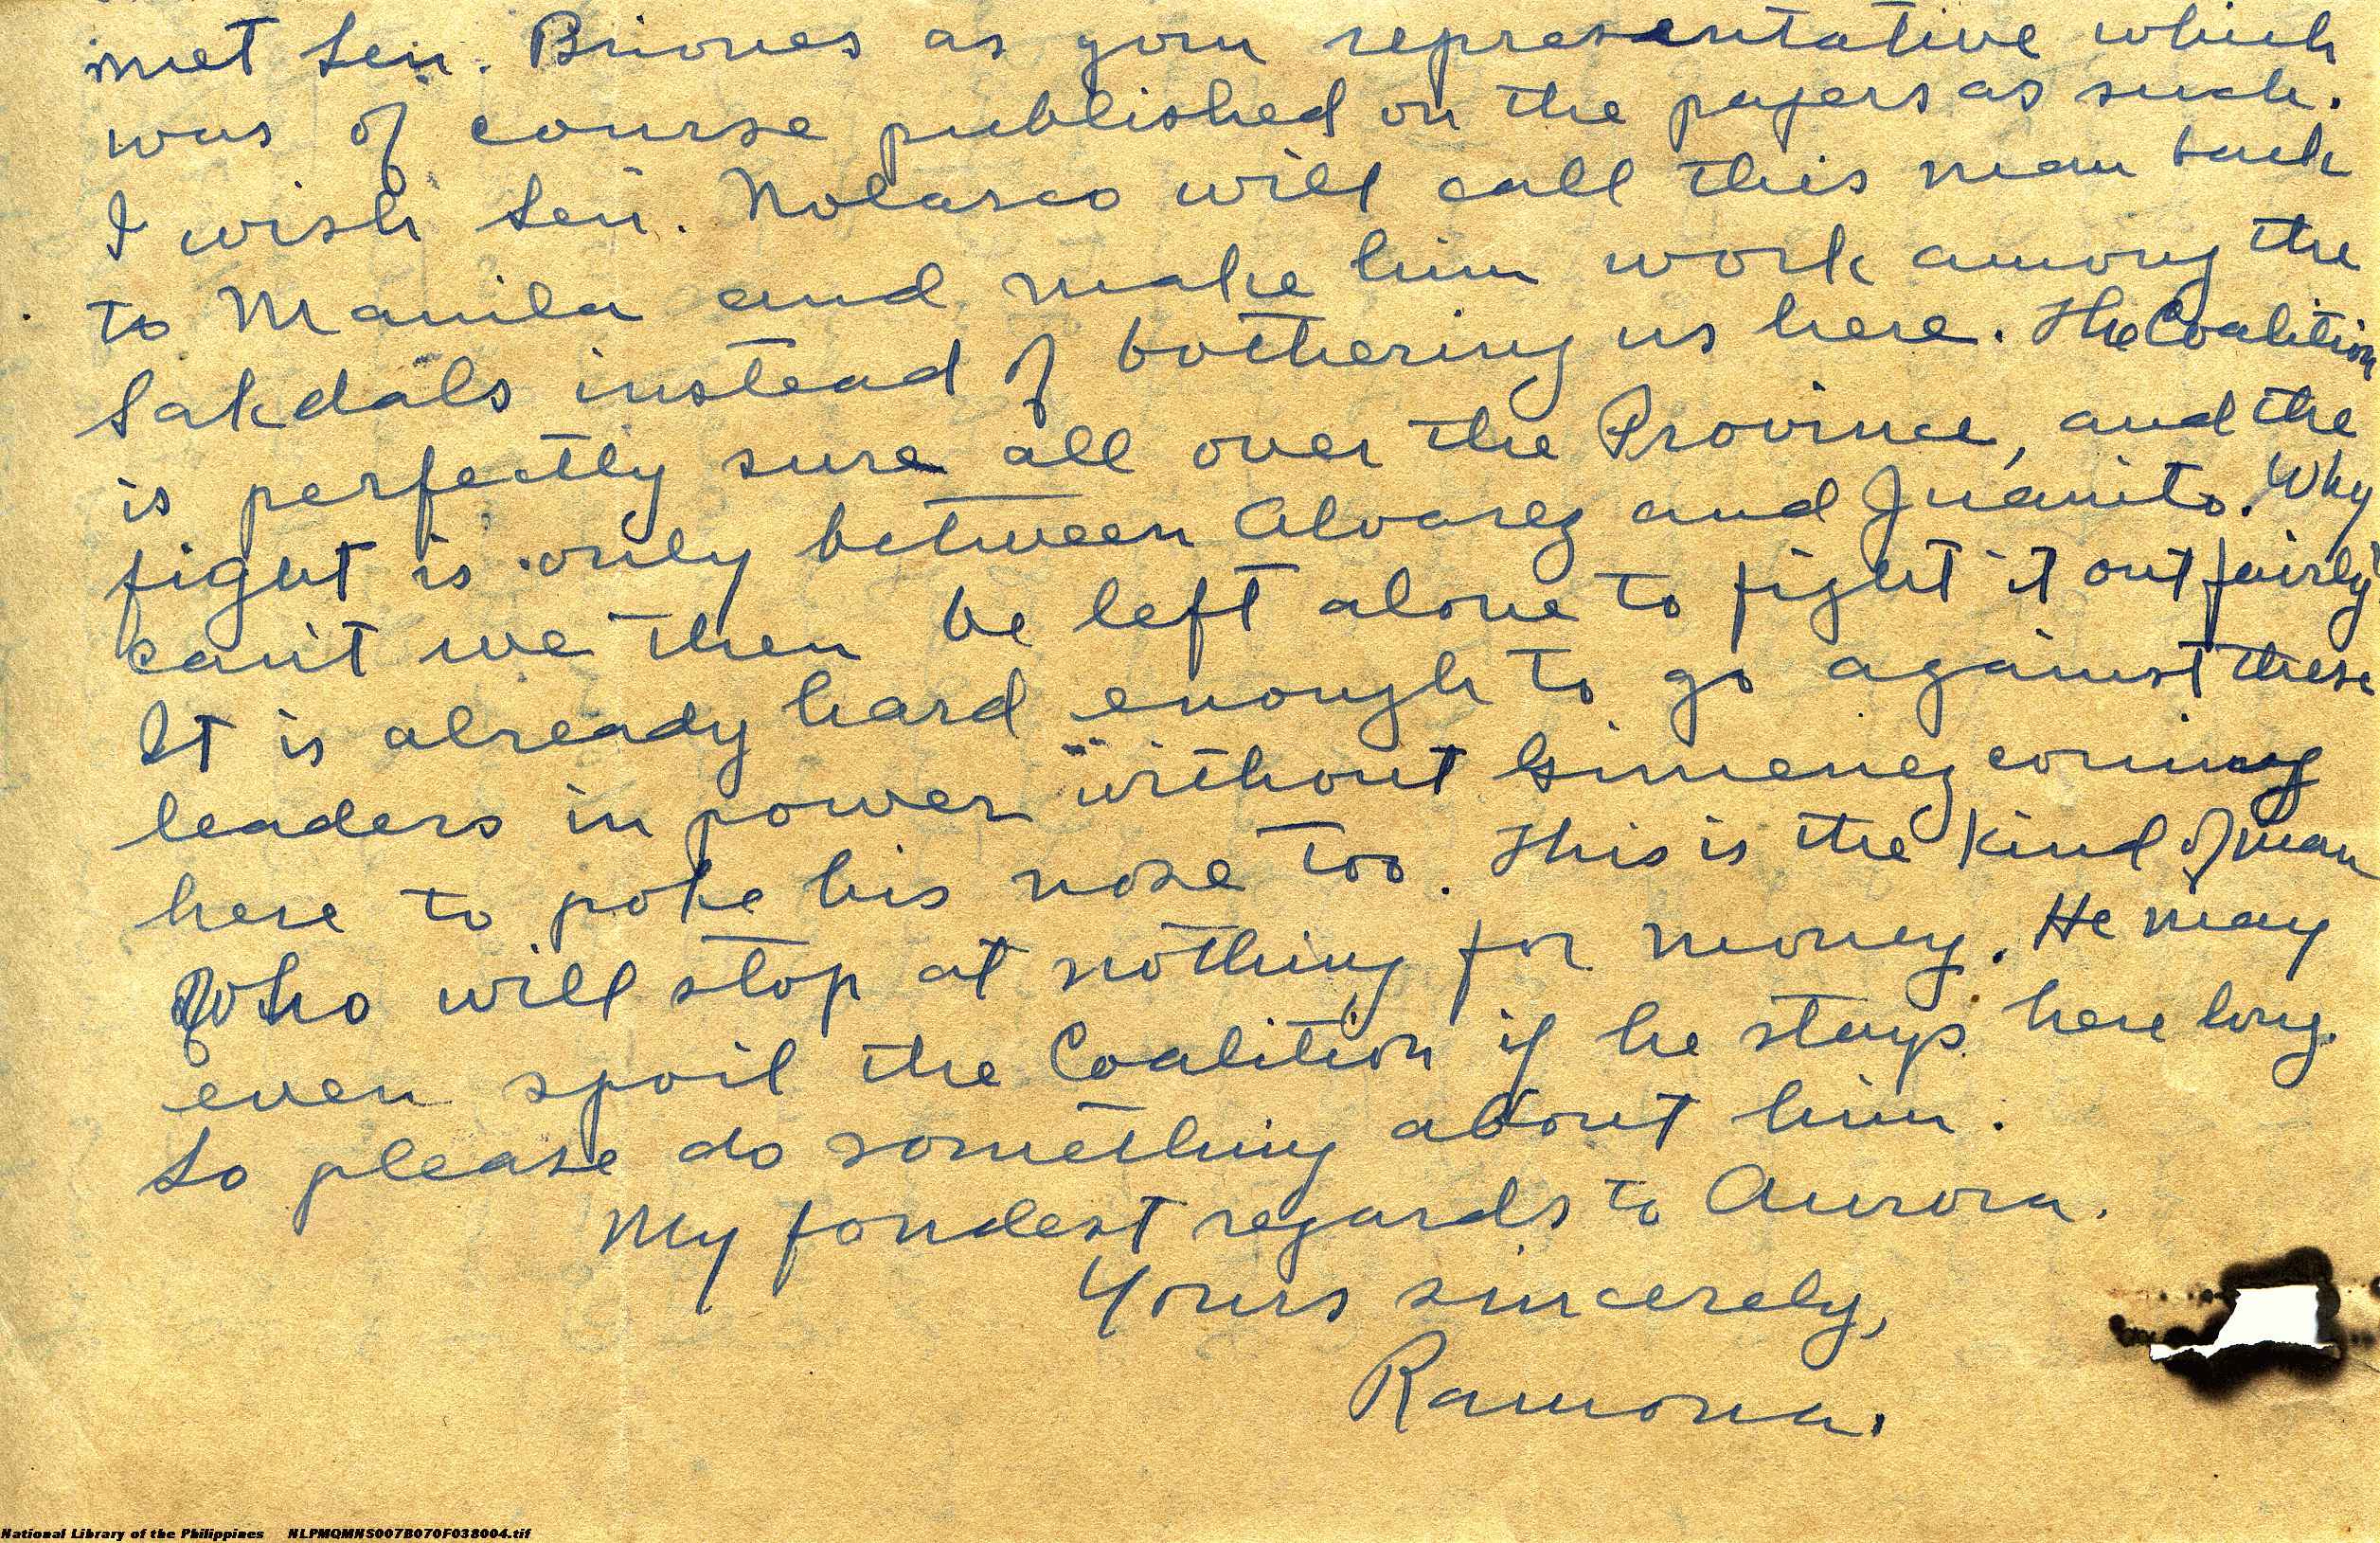 met Sen. Briones as your representative which
was of course published on the papers as such.
I wish Sen. Nolasco will call this man back
to Manila and make him work among the
Sakdals instead of bothering us here. The Coalition
is perfectly sure all over the Province, and the
fight is only between Alvarez and Juanito. Why
can't we then be left alone to fight it out fairly?
It is already hard enough to go against these
leaders in power without Gimenez coming
here to poke his nose too. This is the kind of man
who will stop at nothing for money. He may
even spoil the Coalition if he stays here long.
So please do something about him.
My fondest regards to Aurora.
Yours sincerely,
Ramona.
National Library of the Philippines NLPMQMNS007B070F038004.tif